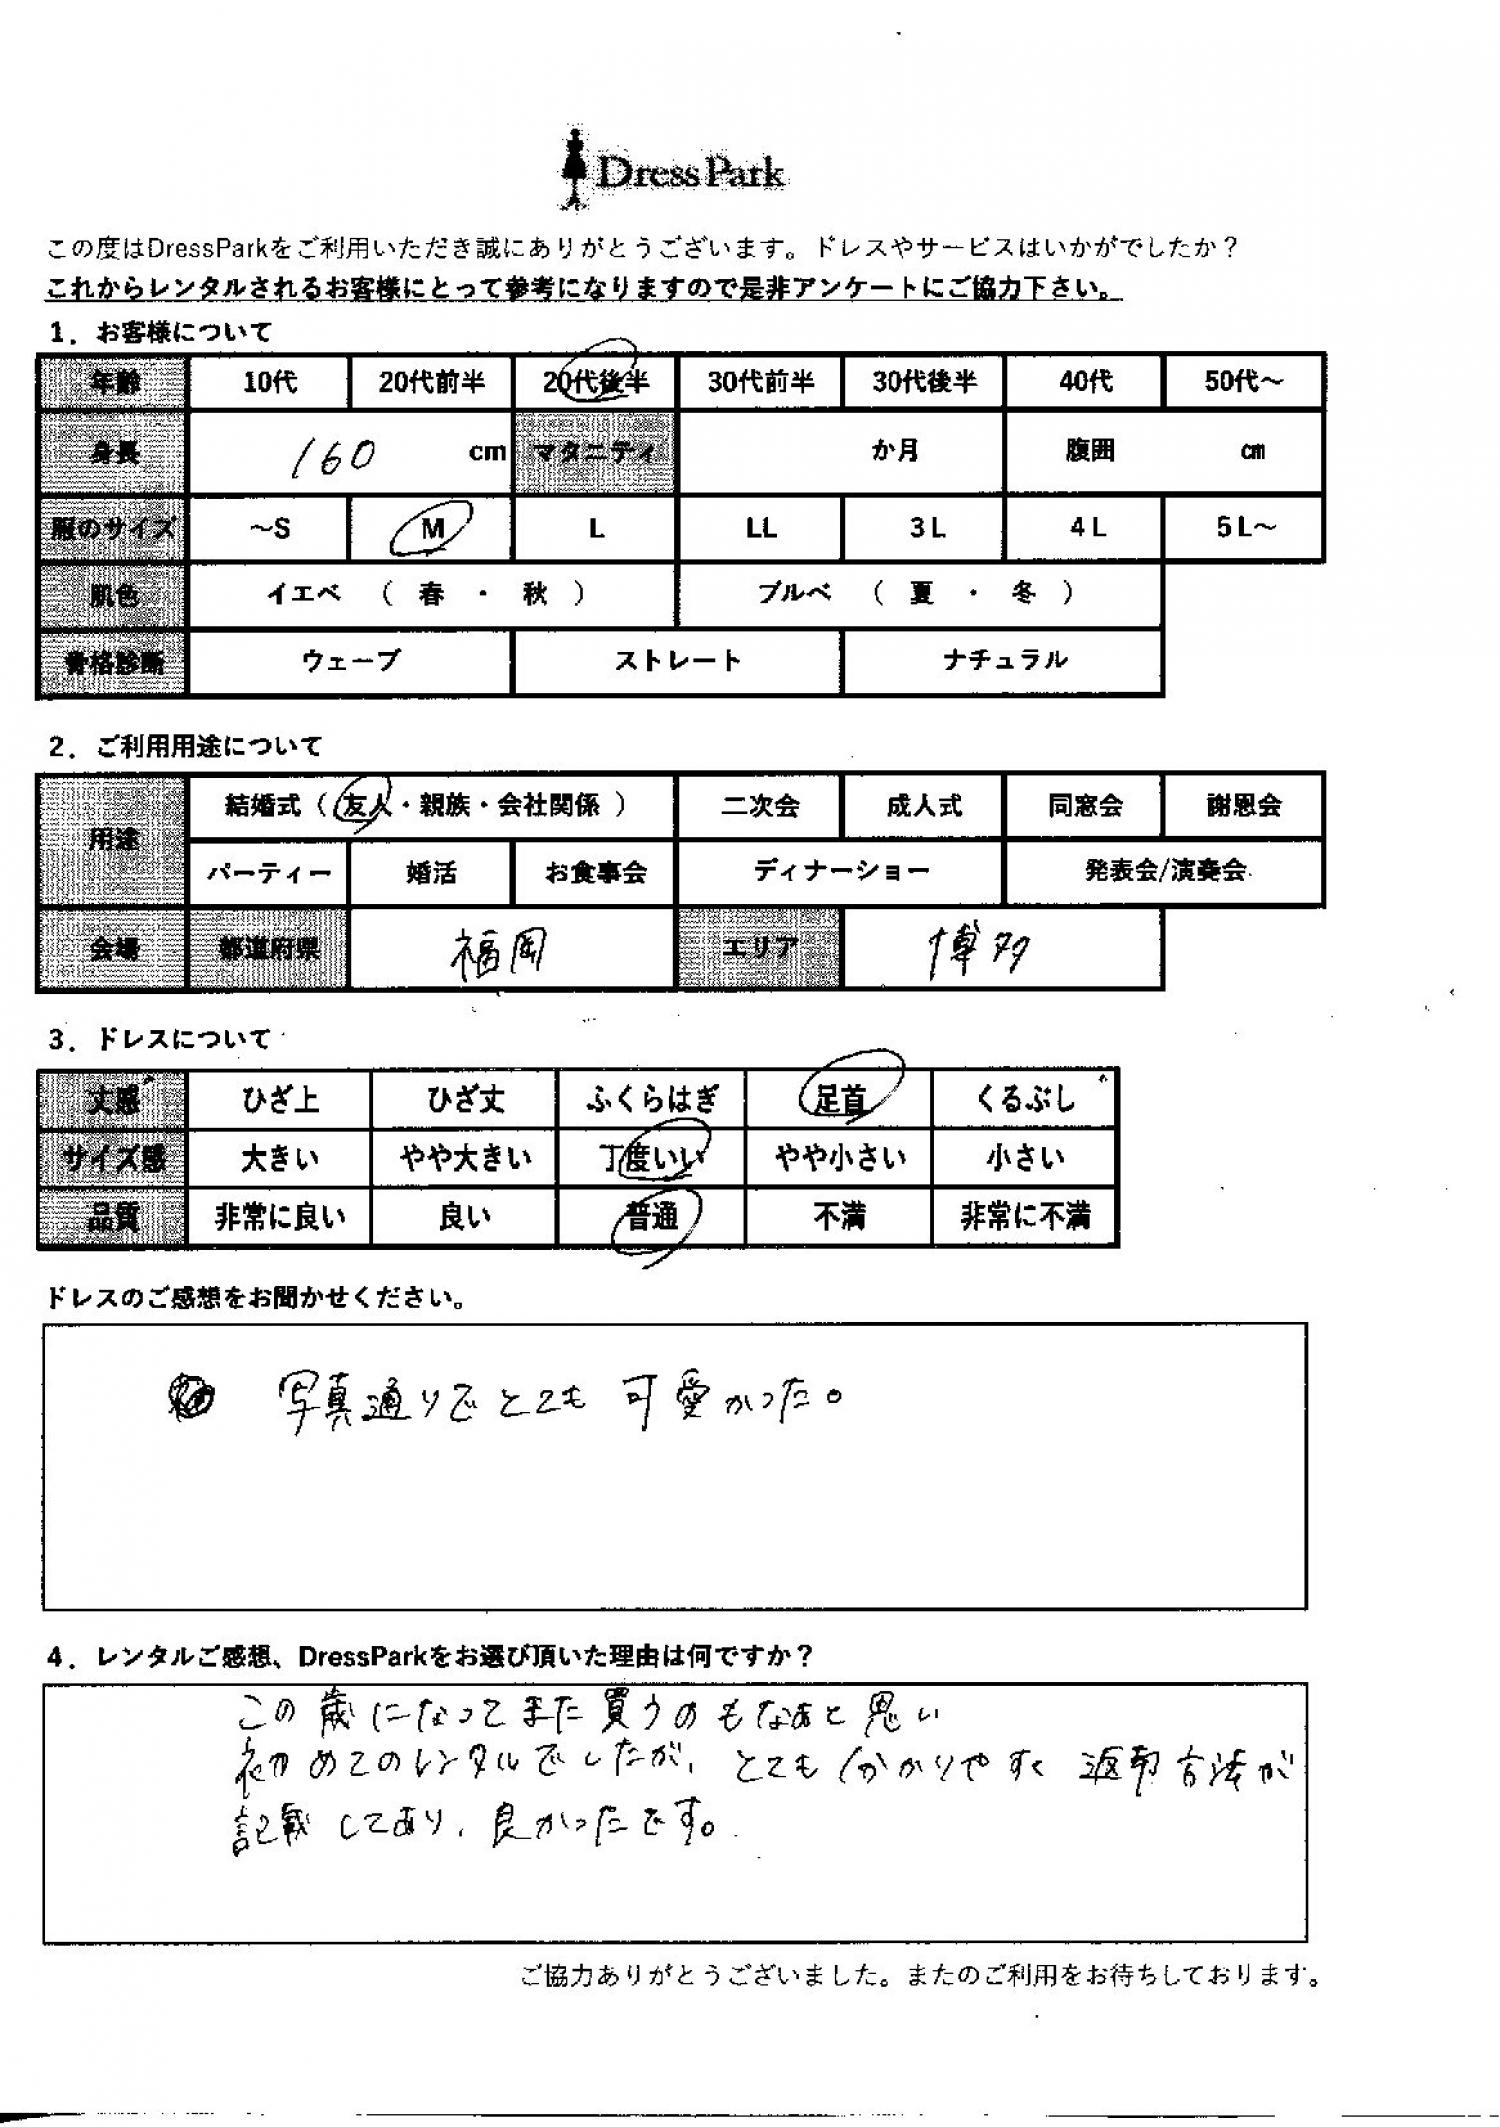 DressPark
この度はDressParkをご利用いただき誠にありがとうございます。ドレスやサービスはいかがでしたか？
これからレンタルされるお客様にとって参考になりますので是非アンケートにご協力下さい。
1．お客様について
年齢 10代 20代前半 20代後半 30代前半 30代後半 40代 50代～
身長 160 cm マタニティ か月 腹囲 cm
服のサイズ ～S M L LL 3L 4L 5L～
肌色 イエベ （ 春 ・ 秋 ） ブルベ （ 夏 ・ 冬 ）
骨格診断 ウェーブ ストレート ナチュラル
2．ご利用用途について
用途 結婚式（ 友人・親族・会社関係 ） 二次会 成人式 同窓会 謝恩会
パーティー 婚活 お食事会 ディナーショー 発表会/演奏会
会場 都道府県 福岡 エリア 博多
3．ドレスについて
丈感 ひざ上 ひざ丈 ふくらはぎ 足首 くるぶし
サイズ感 大きい やや大きい 丁度いい やや小さい 小さい
品質 非常に良い 良い 普通 不満 非常に不満
ドレスのご感想をお聞かせください。
写真通りでとても可愛かった。
4．レンタルご感想、DressParkをお選び頂いた理由は何ですか？
この歳になってまた買うのもなぁと思い
初めてのレンタルでしたが、とても分かりやすく返却方法が
記載してあり、良かったです。
ご協力ありがとうございました。またのご利用をお待ちしております。